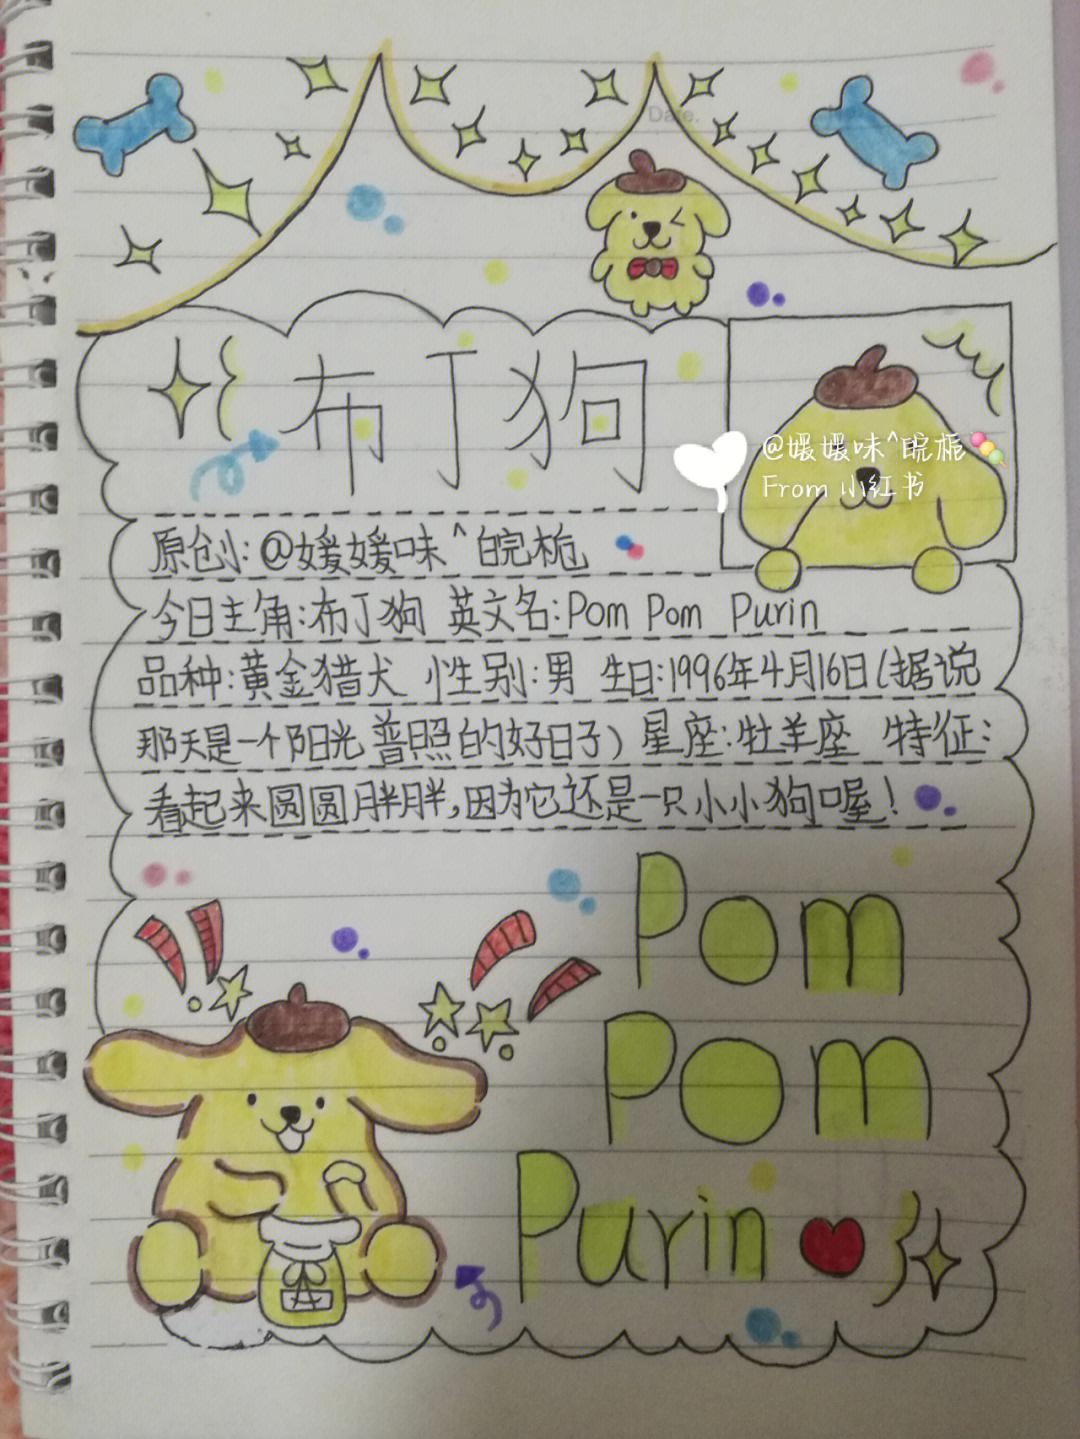 Date.
布丁狗
@媛媛味^皖栀
From 小红书
原创小:@媛媛味^皖栀
今日主角:布丁狗 英文名:Pom Pom Purin
品种:黄金猎犬 性别:男 生日:1996年4月16日(据说
那天是一个阳光普照的好日子) 星座:牡羊座 特征:
看起来圆圆胖胖,因为它还是一只小小狗喔!
Pom
Pom
Purin